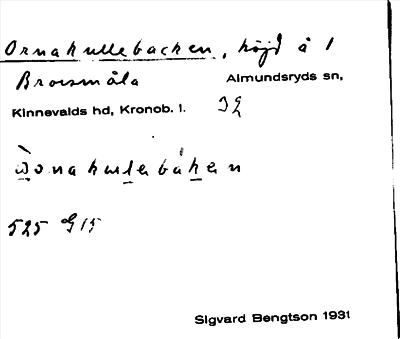 Ornakullebacken, höjd å 1
Brorsmåla Almundsryds sn,
Kinnevalds hd, Kronob. l.
525 G15
Sigvard Bengtson 1931